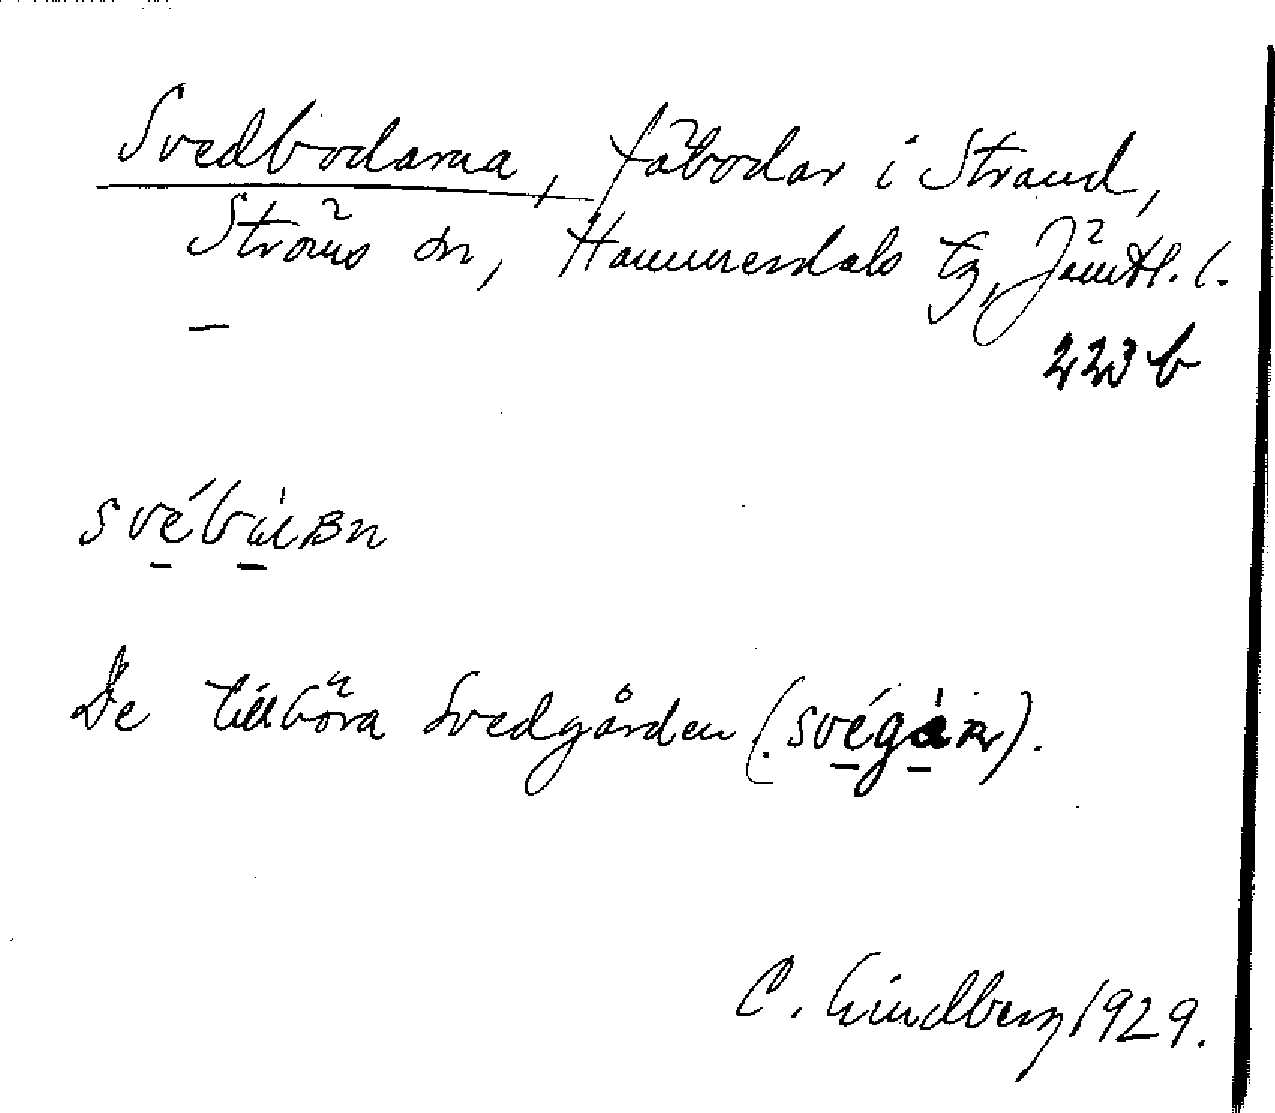 Svedbodarna, fäbodar i Strand,
Ströms sn, Hammerdals tg, Jämtl. l.
223 b
De tillhöra Svedgården (svégȧʀ).
C. Lindberg 1929.